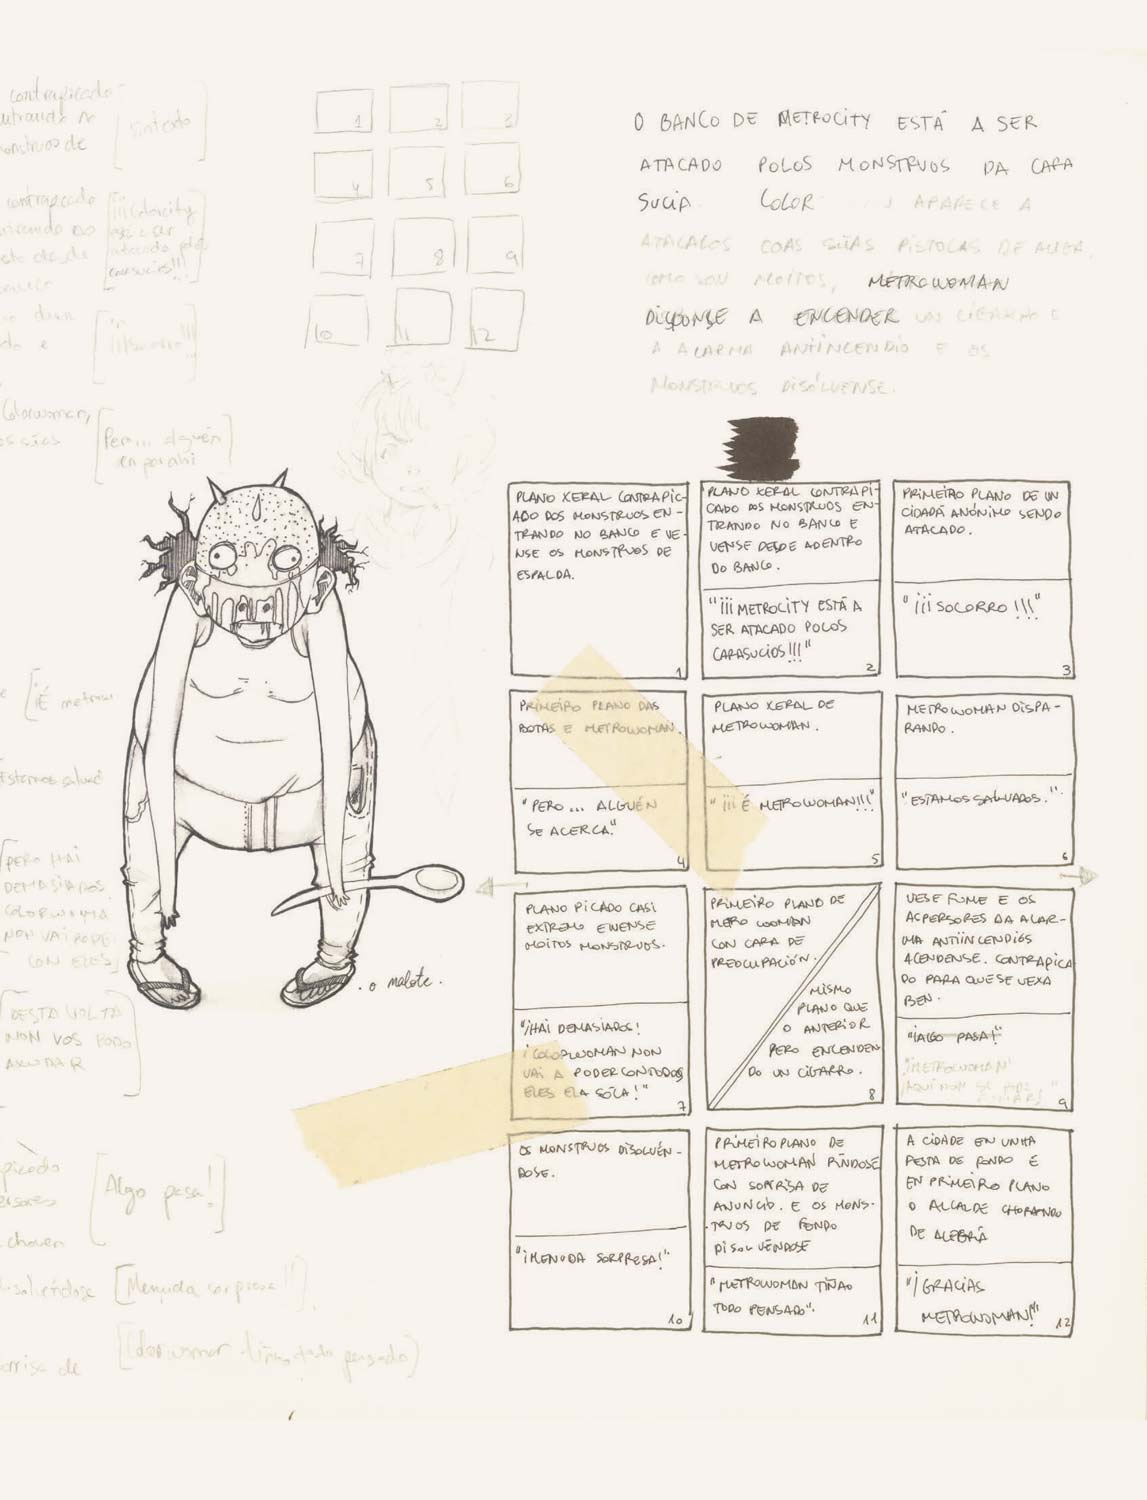 contrapicado
sintedo
contrapicado
¡¡¡Colorcity
está a ser
atacado polos
carasucios!!!
¡¡¡Socorro!!!
Colorwoman,
Pero... alguén
en por ahi
1
2
3
4
5
6
7
8
9
10
11
12
O BANCO DE METROCITY ESTÁ A SER
ATACADO POLOS MONSTRUOS DA CARA
SUCIA. COLOR APARECE A
ATACALOS COAS SÚAS PISTOLAS DE AUGA.
COMO SON MOITOS, METROWOMAN
DISPONSE A ENCENDER UN CIGARRO E
A ALARMA ANTIINCENDIO E OS
MONSTRUOS DISÓLVENSE.
¡É metrow
Estamos salvad
PERO HAI
DEMASIADOS
COLORWOMA
NON VAI PODE
CON ELES
DESTA VOLTA
NON VOS PODO
AXUDAR
. o malote .
Algo pasa!
choven
[Menuda sorpresa!!]
[Colorwoman tiña todo pensado]
sorrisa de
PLANO XERAL CONTRAPIC-
ADO DOS MONSTRUOS EN-
TRANDO NO BANCO E VE-
NSE OS MONSTRUOS DE
ESPALDA.
1
PLANO XERAL CONTRAPI-
CADO DOS MONSTRUOS EN-
TRANDO NO BANCO E
VENSE DESDE ADENTRO
DO BANCO.
"¡¡¡METROCITY ESTÁ A
SER ATACADO POLOS
CARASUCIOS!!!"
2
PRIMEIRO PLANO DE UN
CIDADÁ ANÓNIMO SENDO
ATACADO.
"¡¡¡SOCORRO!!!"
3
PRIMEIRO PLANO DAS
BOTAS E METROWOMAN.
"PERO... ALGUÉN
SE ACERCA."
4
PLANO XERAL DE
METROWOMAN.
"¡¡¡É METROWOMAN!!!"
5
METROWOMAN DISPA-
RANDO.
"ESTAMOS SALVADOS."
6
PLANO PICADO CASI
EXTREMO EVENSE
MOITOS MONSTRUOS.
"¡HAI DEMASIADOS!
¡COLORWOMAN NON
VAI A PODER CON TODOS
ELES ELA SÓLA!"
7
PRIMEIRO PLANO DE
METRO WOMAN
CON CARA DE
PREOCUPACIÓN.
MISMO
PLANO QUE
O ANTERIOR
PERO ENCENDEN
DO UN CIGARRO.
8
VESE FUME E OS
ASPERSORES DA ALAR-
MA ANTIINCENDIOS
ACENDENSE. CONTRAPICA
DO PARA QUE SE VEXA
BEN.
"¡ALGO PASA!"
"¡METROWOMAN!
¡AQUI NON SE
9
OS MONSTRUOS DISOLVÉN-
DOSE.
"¡MENUDA SORPRESA!"
10
PRIMEIRO PLANO DE
METROWOMAN RINDOSE
CON SORRISA DE
ANUNCIO. E OS MONS-
TRUOS DE FONDO
DISOLVÉNDOSE
"METROWOMAN TIÑAO
TODO PENSADO".
11
A CIDADE EN UNHA
FESTA DE FONDO E
EN PRIMEIRO PLANO
O ALCALDE CHORANDO
DE ALEGRÍA
"¡GRACIAS
METROWOMAN!"
12